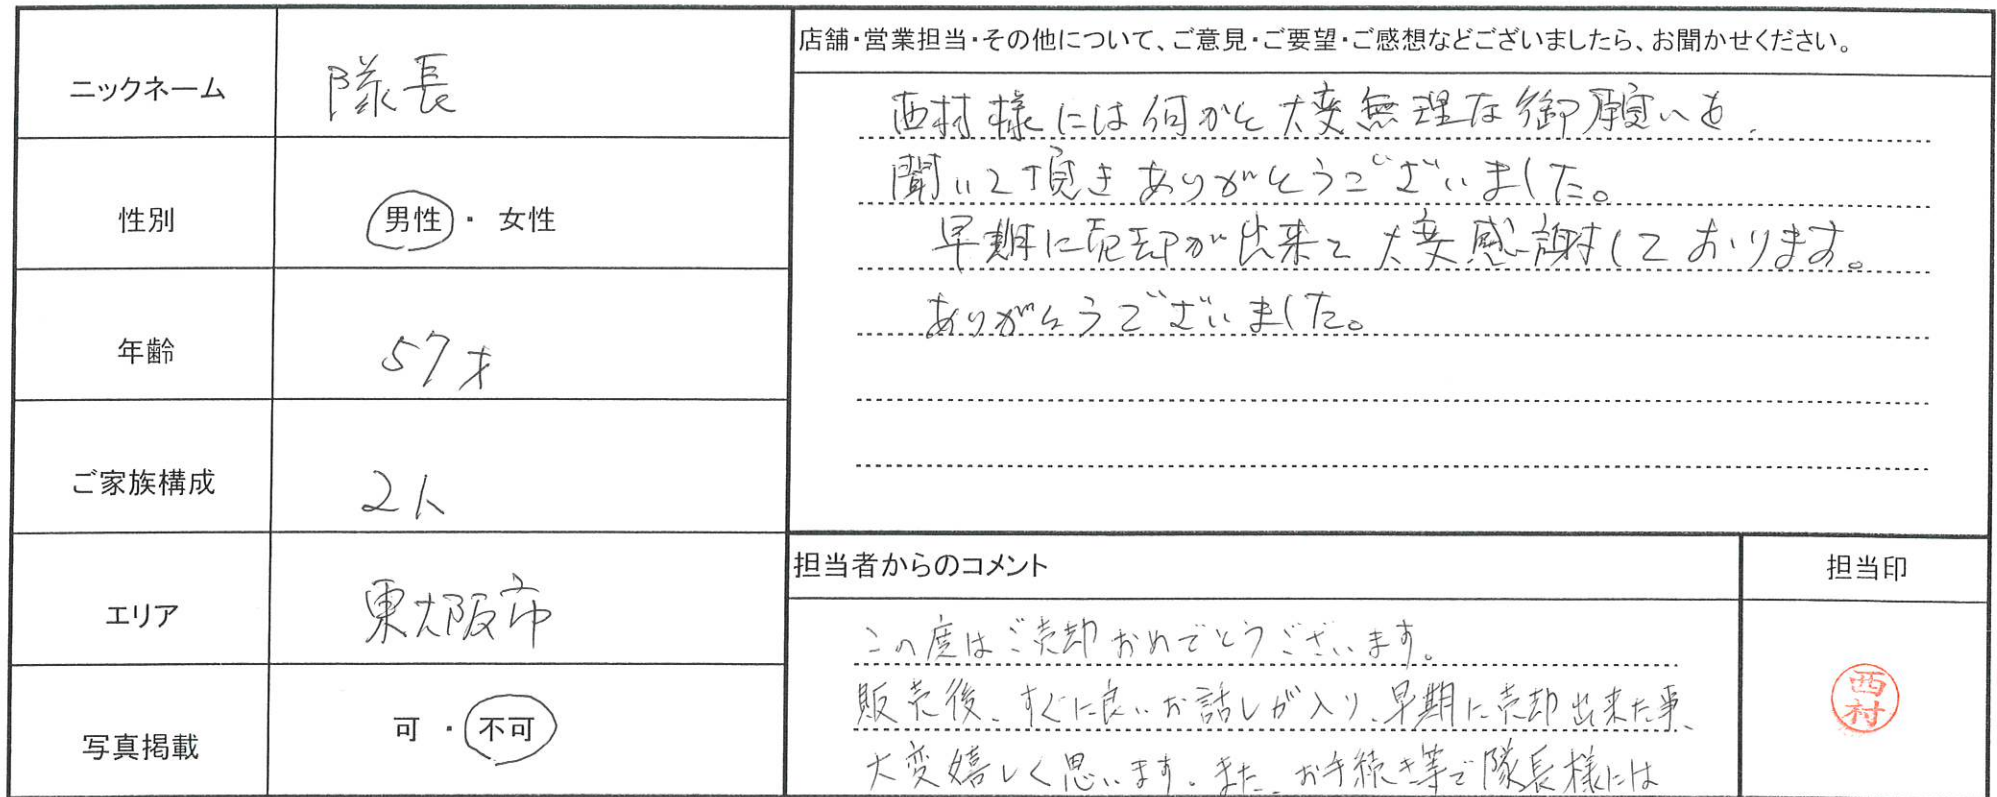 ニックネーム 隊長
性別 男性・女性
年齢 57才
ご家族構成 2人
エリア 東大阪市
写真掲載 可・不可
店舗・営業担当・その他について、ご意見・ご要望・ご感想などございましたら、お聞かせください。
西村様には何かと大変無理な御願いを、
聞いて頂きありがとうございました。
早期に売却が出来て大変感謝しております。
ありがとうございました。
担当者からのコメント
この度はご売却おめでとうございます。
販売後、すぐに良いお話しが入り、早期に売却出来た事、
大変嬉しく思います。また、お手続き等で隊長様には
担当印
西村